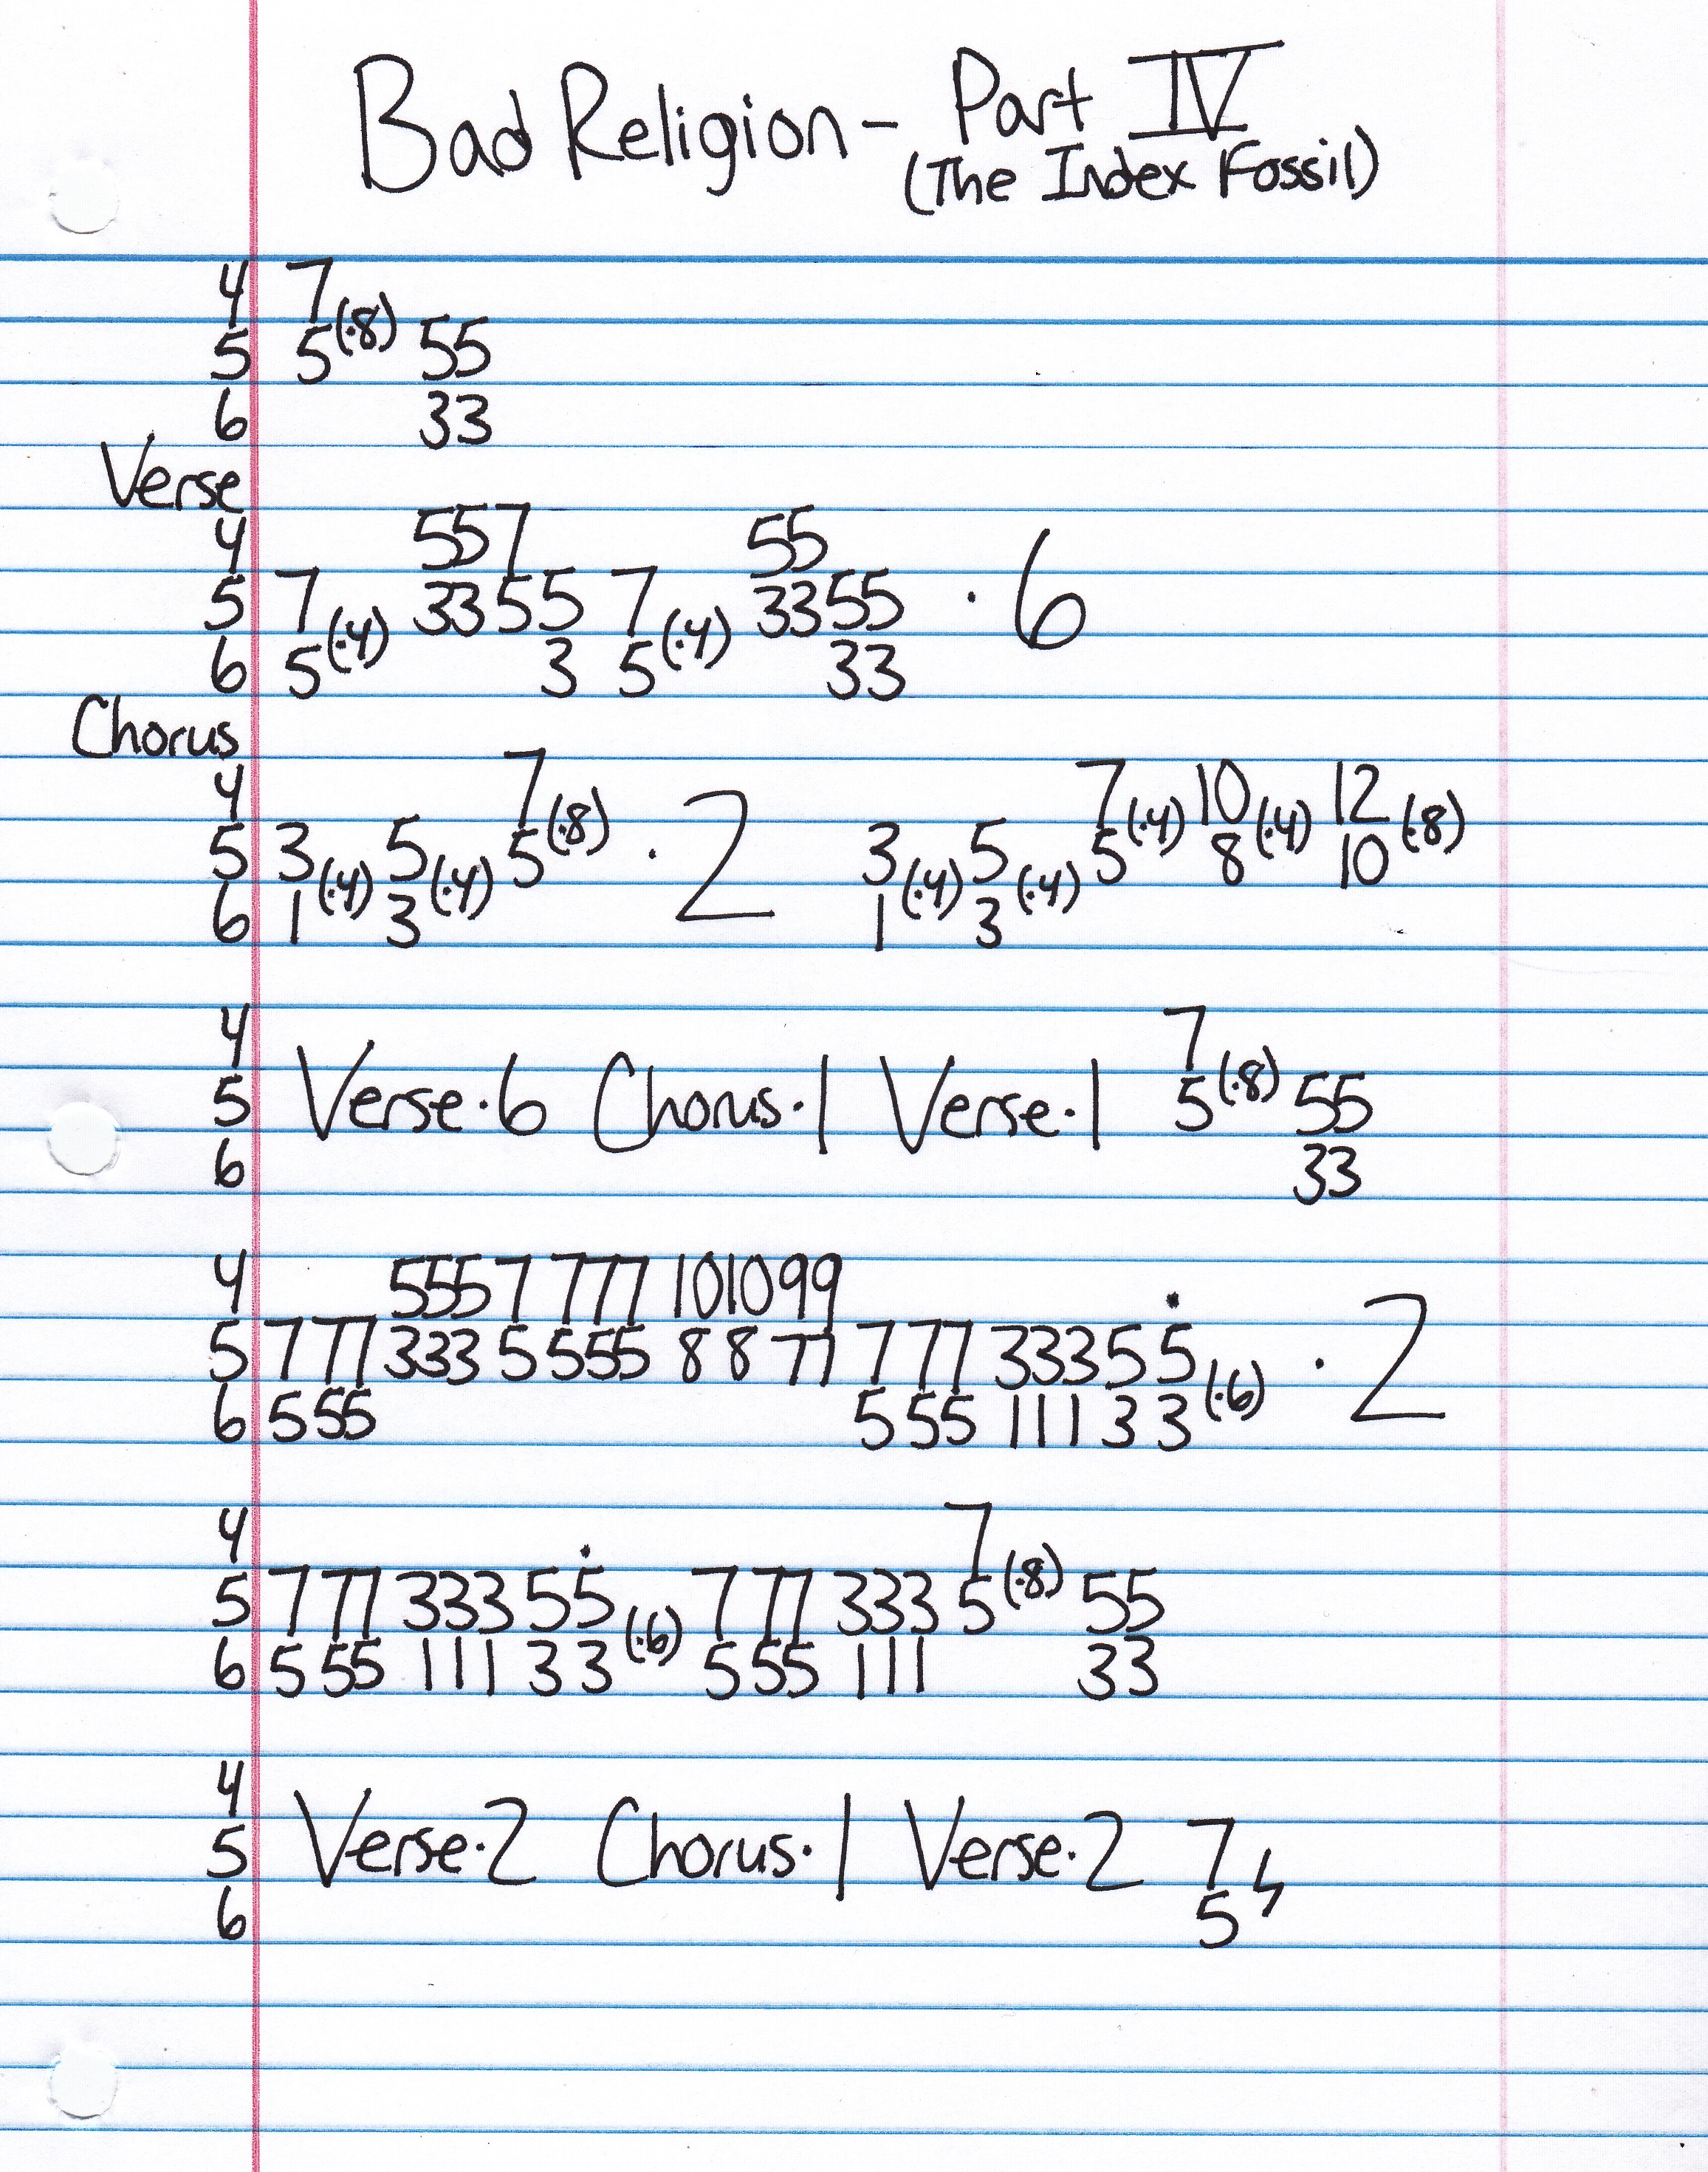 Bad Religion - Part IV
(The Index Fossil)
4 7
5 5(·8) 55
6 33
Verse
4 557 55
5 7 33 55 7 3355 · 6
6 5(·4) 3 5(·4) 33
Chorus
4 7(·8) 7(·4) 10(·4) 12(·8)
5 3 5 5 · 2 3 5 5 8 10
6 1(·4) 3(·4) 1(·4) 3(·4)
4 7
5 Verse·6 Chorus·1 Verse·1 5(·8) 55
6 33
4 555 7 777 101099
5 7 77 333 5 555 8 8 77 7 77 333 5 5̇ · 2
6 5 55 5 55 111 3 3(·6)
4 7
5 7 77 333 5 5̇ 7 77 333 5(·8) 55
6 5 55 111 3 3(·6) 5 55 111 33
4
5 Verse·2 Chorus·1 Verse·2 7
6 5